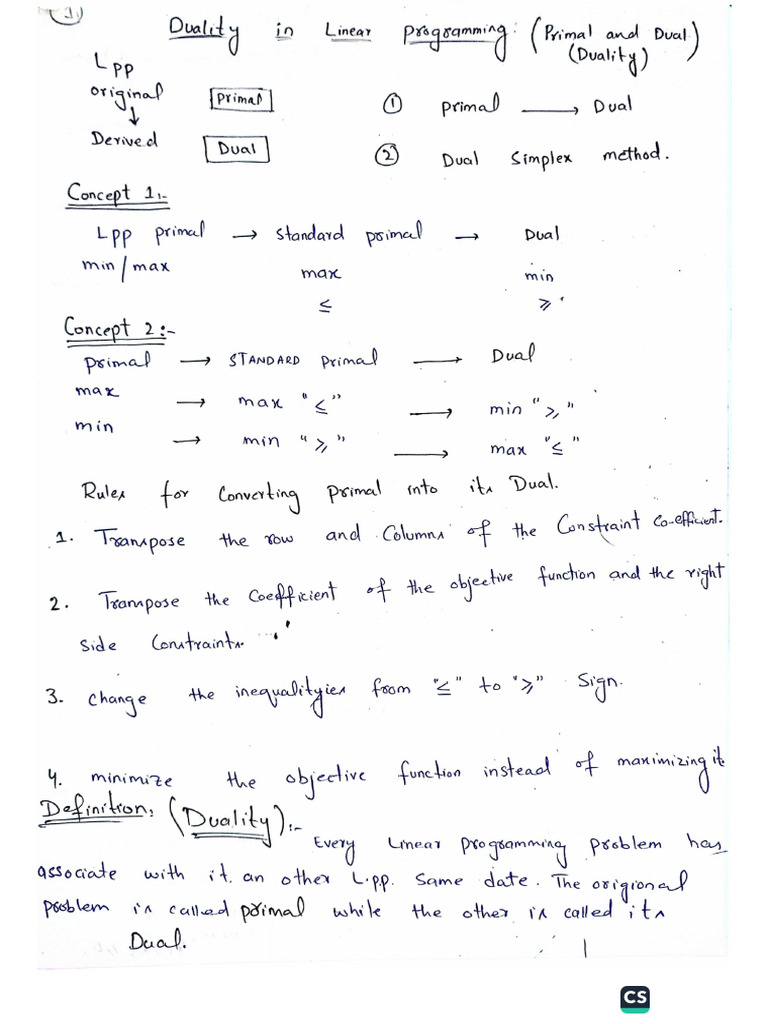 1.
Duality in Linear programming: (Primal and Dual)
(Duality)
Lpp
original Primal ① primal ⟶ Dual
↓
Derived Dual ② Dual Simplex method.
Concept 1:-
Lpp primal → standard primal → Dual
min/max max min
≤ ≥
Concept 2:-
primal → STANDARD primal ⟶ Dual
max → max "≤" ⟶ min "≥"
min → min "≥" ⟶ max "≤"
Rules for converting primal into its Dual.
1. Transpose the row and Columns of the Constraint co-efficient.
2. Transpose the coefficient of the objective function and the right
side Constraints.
3. change the inequalityies from "≤" to "≥" Sign.
4. minimize the objective function instead of maximizing it
Definition: (Duality):-
Every Linear programming problem has
associate with it. an other L.pp. same date. The origional
problem is called primal while the other is called its
Dual.
1
CS